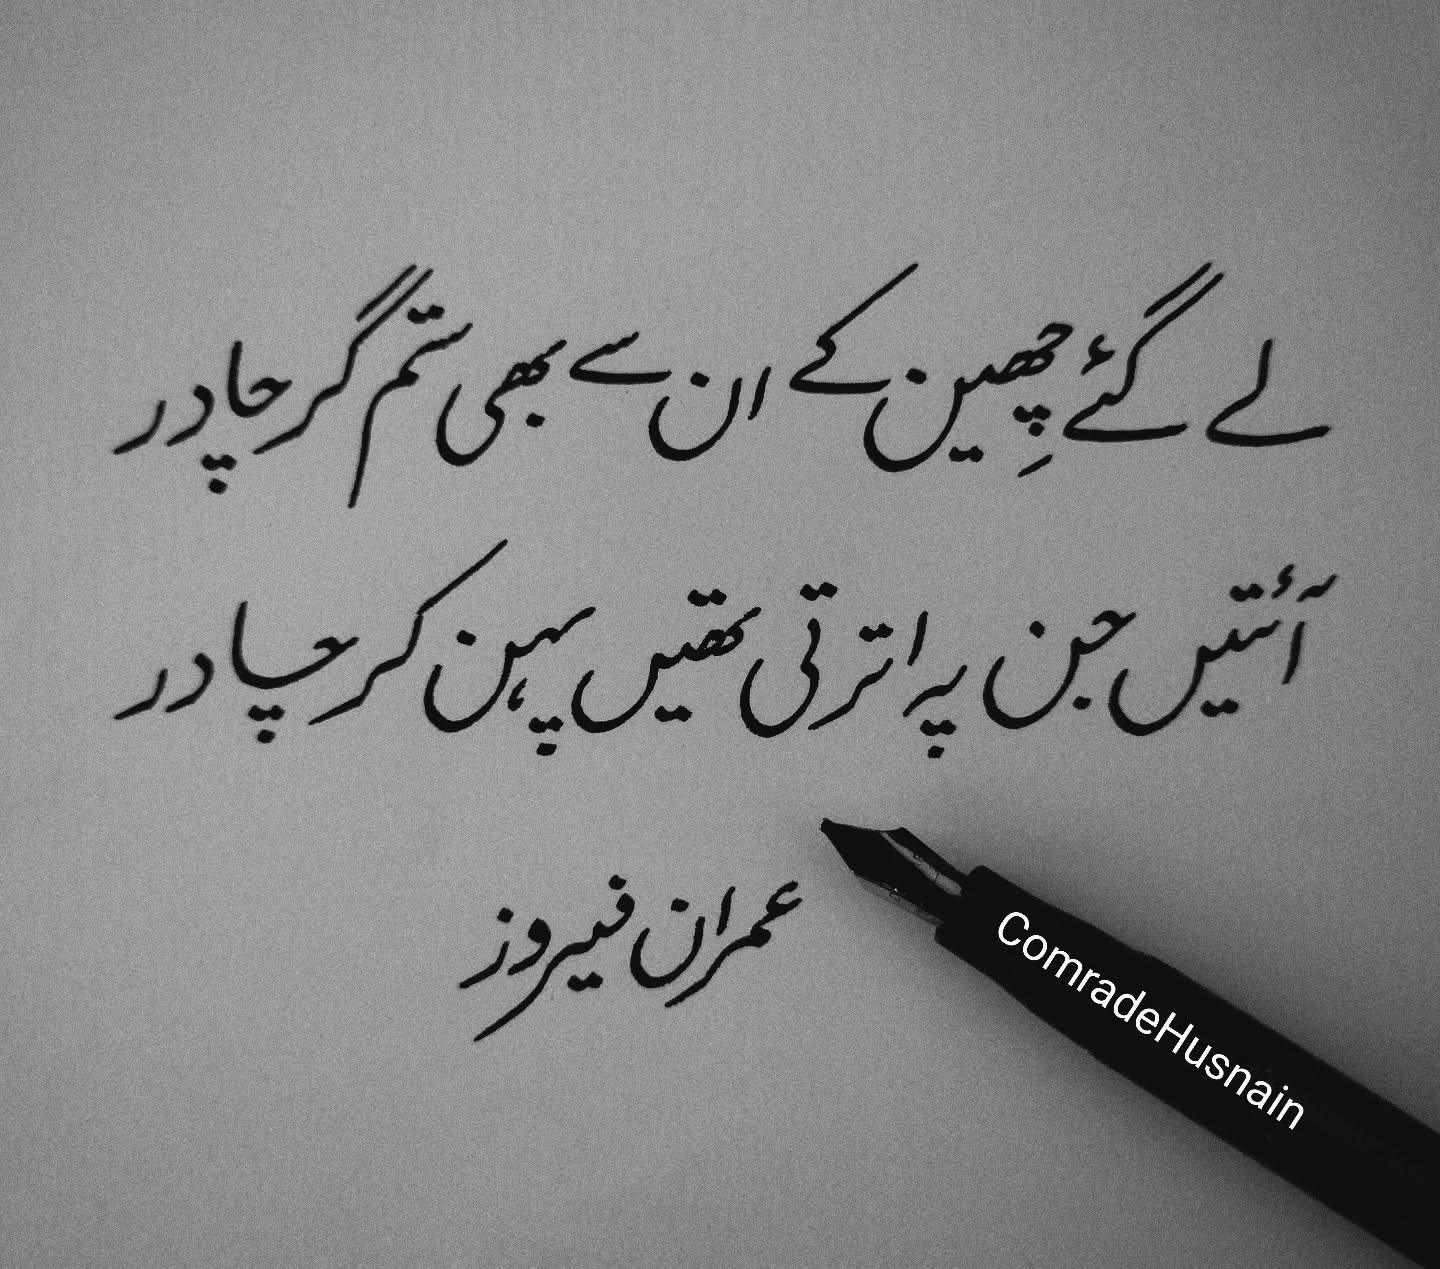 لے گئے چھِین کے ان سے بھی ستم گر چادر
آئتیں جن پہ اترتی تھیں پہن کر چادر
عمران فیروز
ComradeHusnain